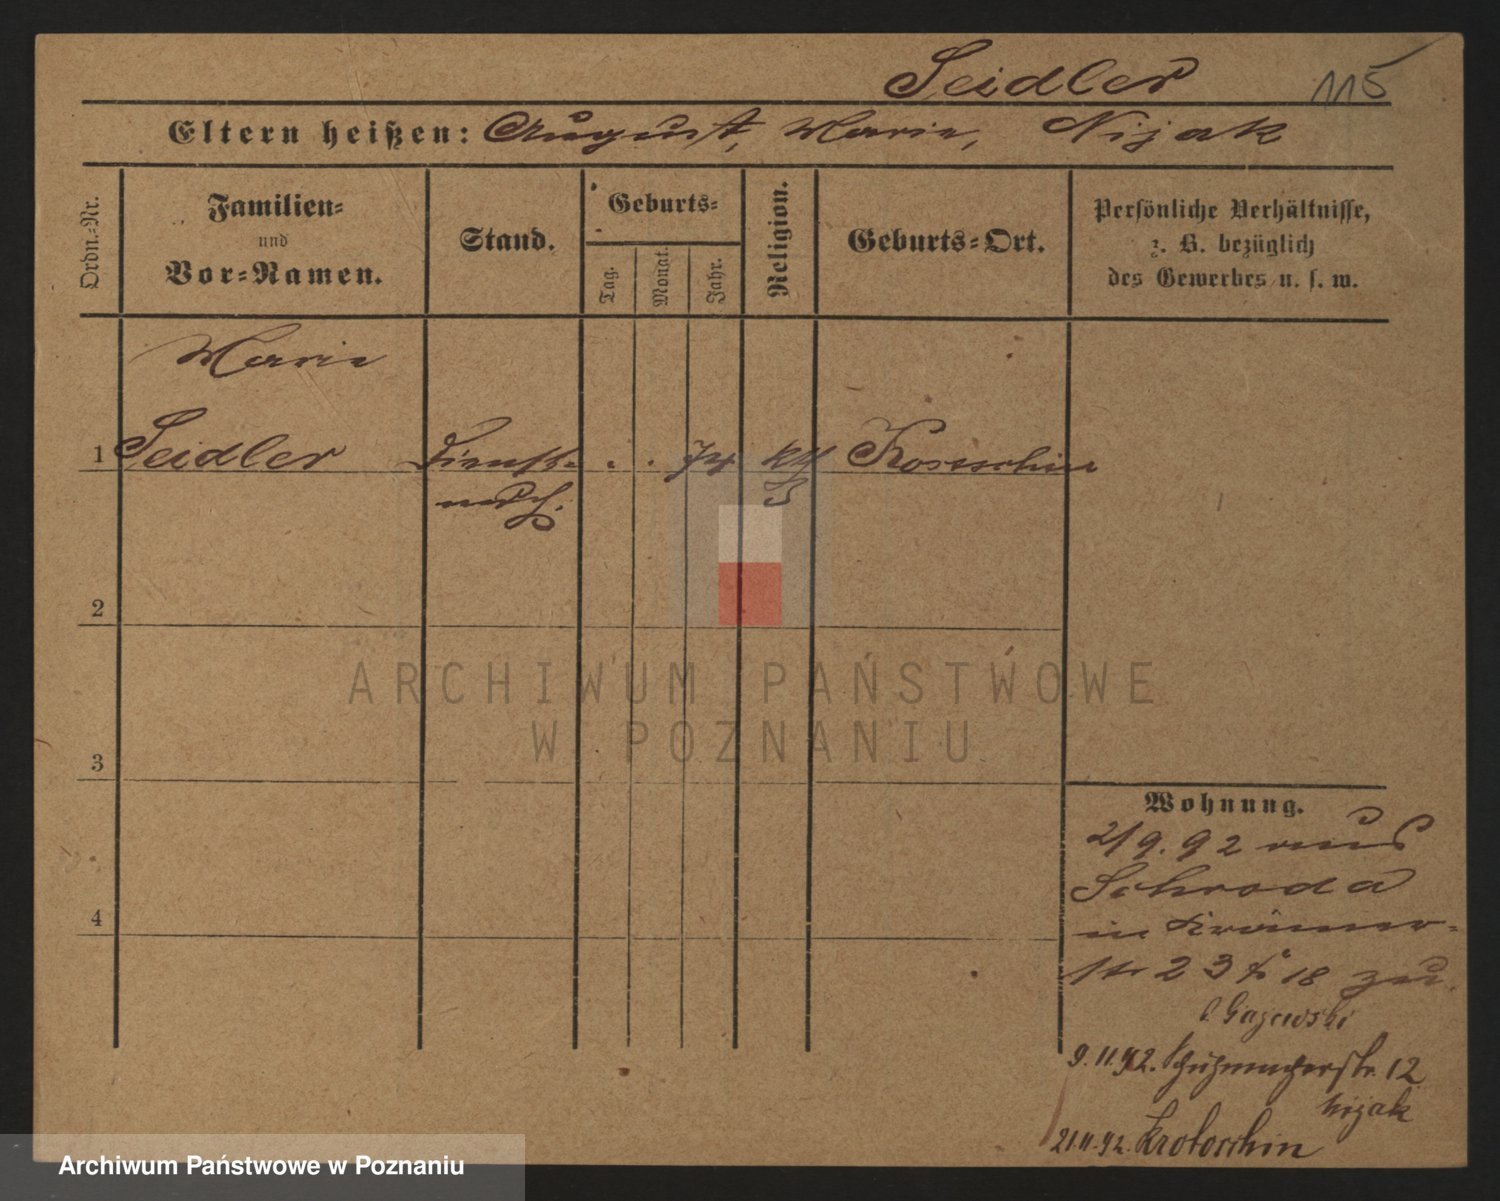 Seidler 115
Eltern heißen: August, Marie, Nijak
Ordn.-Nr.
Familien-
und
Vor-Namen.
Stand.
Geburts-
Tag.
Monat.
Jahr.
Religion.
Geburts-Ort.
Persönliche Verhältnisse,
z. B. bezüglich
des Gewerbes u. s. w.
Marie
1 Seidler Dienst- . . 74 kth
mdch.
2
3
4
ARCHIWUM PAŃSTWOWE
W POZNANIU
Wohnung.
2/9.92 aus
Schroda
in Krämer-
str 23 18 zu.
Gajewski
9.11.92. Schuhmacherstr. 12
Nijak
21.11.92. Krotoschin
Archiwum Państwowe w Poznaniu